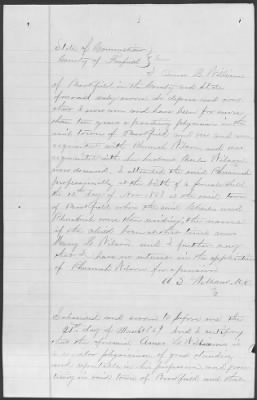 State of Connecticut
County of Fairfield } ss
I Amos L. Williams
of Brookfield in the County and State
aforesaid being sworn do depose and say
that I am now and have been for more
than ten years a practicing physician in the
said town of Brookfield, and am and was
acquainted with Phannah Wilson and was
acquainted with her husband Charles Wilson
now deceased. I attended the said Phannah
professionally at the birth of a female child
the day of Nov. in the said town
of Brookfield where the said Charles and
Phannah were then residing, the name
of the child born at that time was
Mary Wilson and I further say
that I have no interest in the application
of Phannah Wilson for a pension
A L Williams M.D.
Subscribed and sworn to before me the
day of March and I certify
that the foresaid Amos L Williams is
a regular physician of good standing
and reputable in his profession and practicing
in said town of Brookfield and that